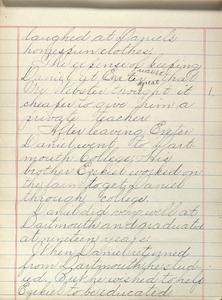 laughed at Daniel's
homespun clothes.
The expense of keeping
Daniel at Exeter was so great that
Mr. Webster thought it
cheaper to give him a
private teacher
After leaving Exeter
Daniel went to Dart
mouth College. His
brother Ezekiel worked on
the farm to get Daniel
through college.
Daniel did very well at
Dartmouth and graduated
at nineteen years.
When Daniel returned
from Dartmouth, he stud
ied. But he worked to help
Ezekiel to be educated